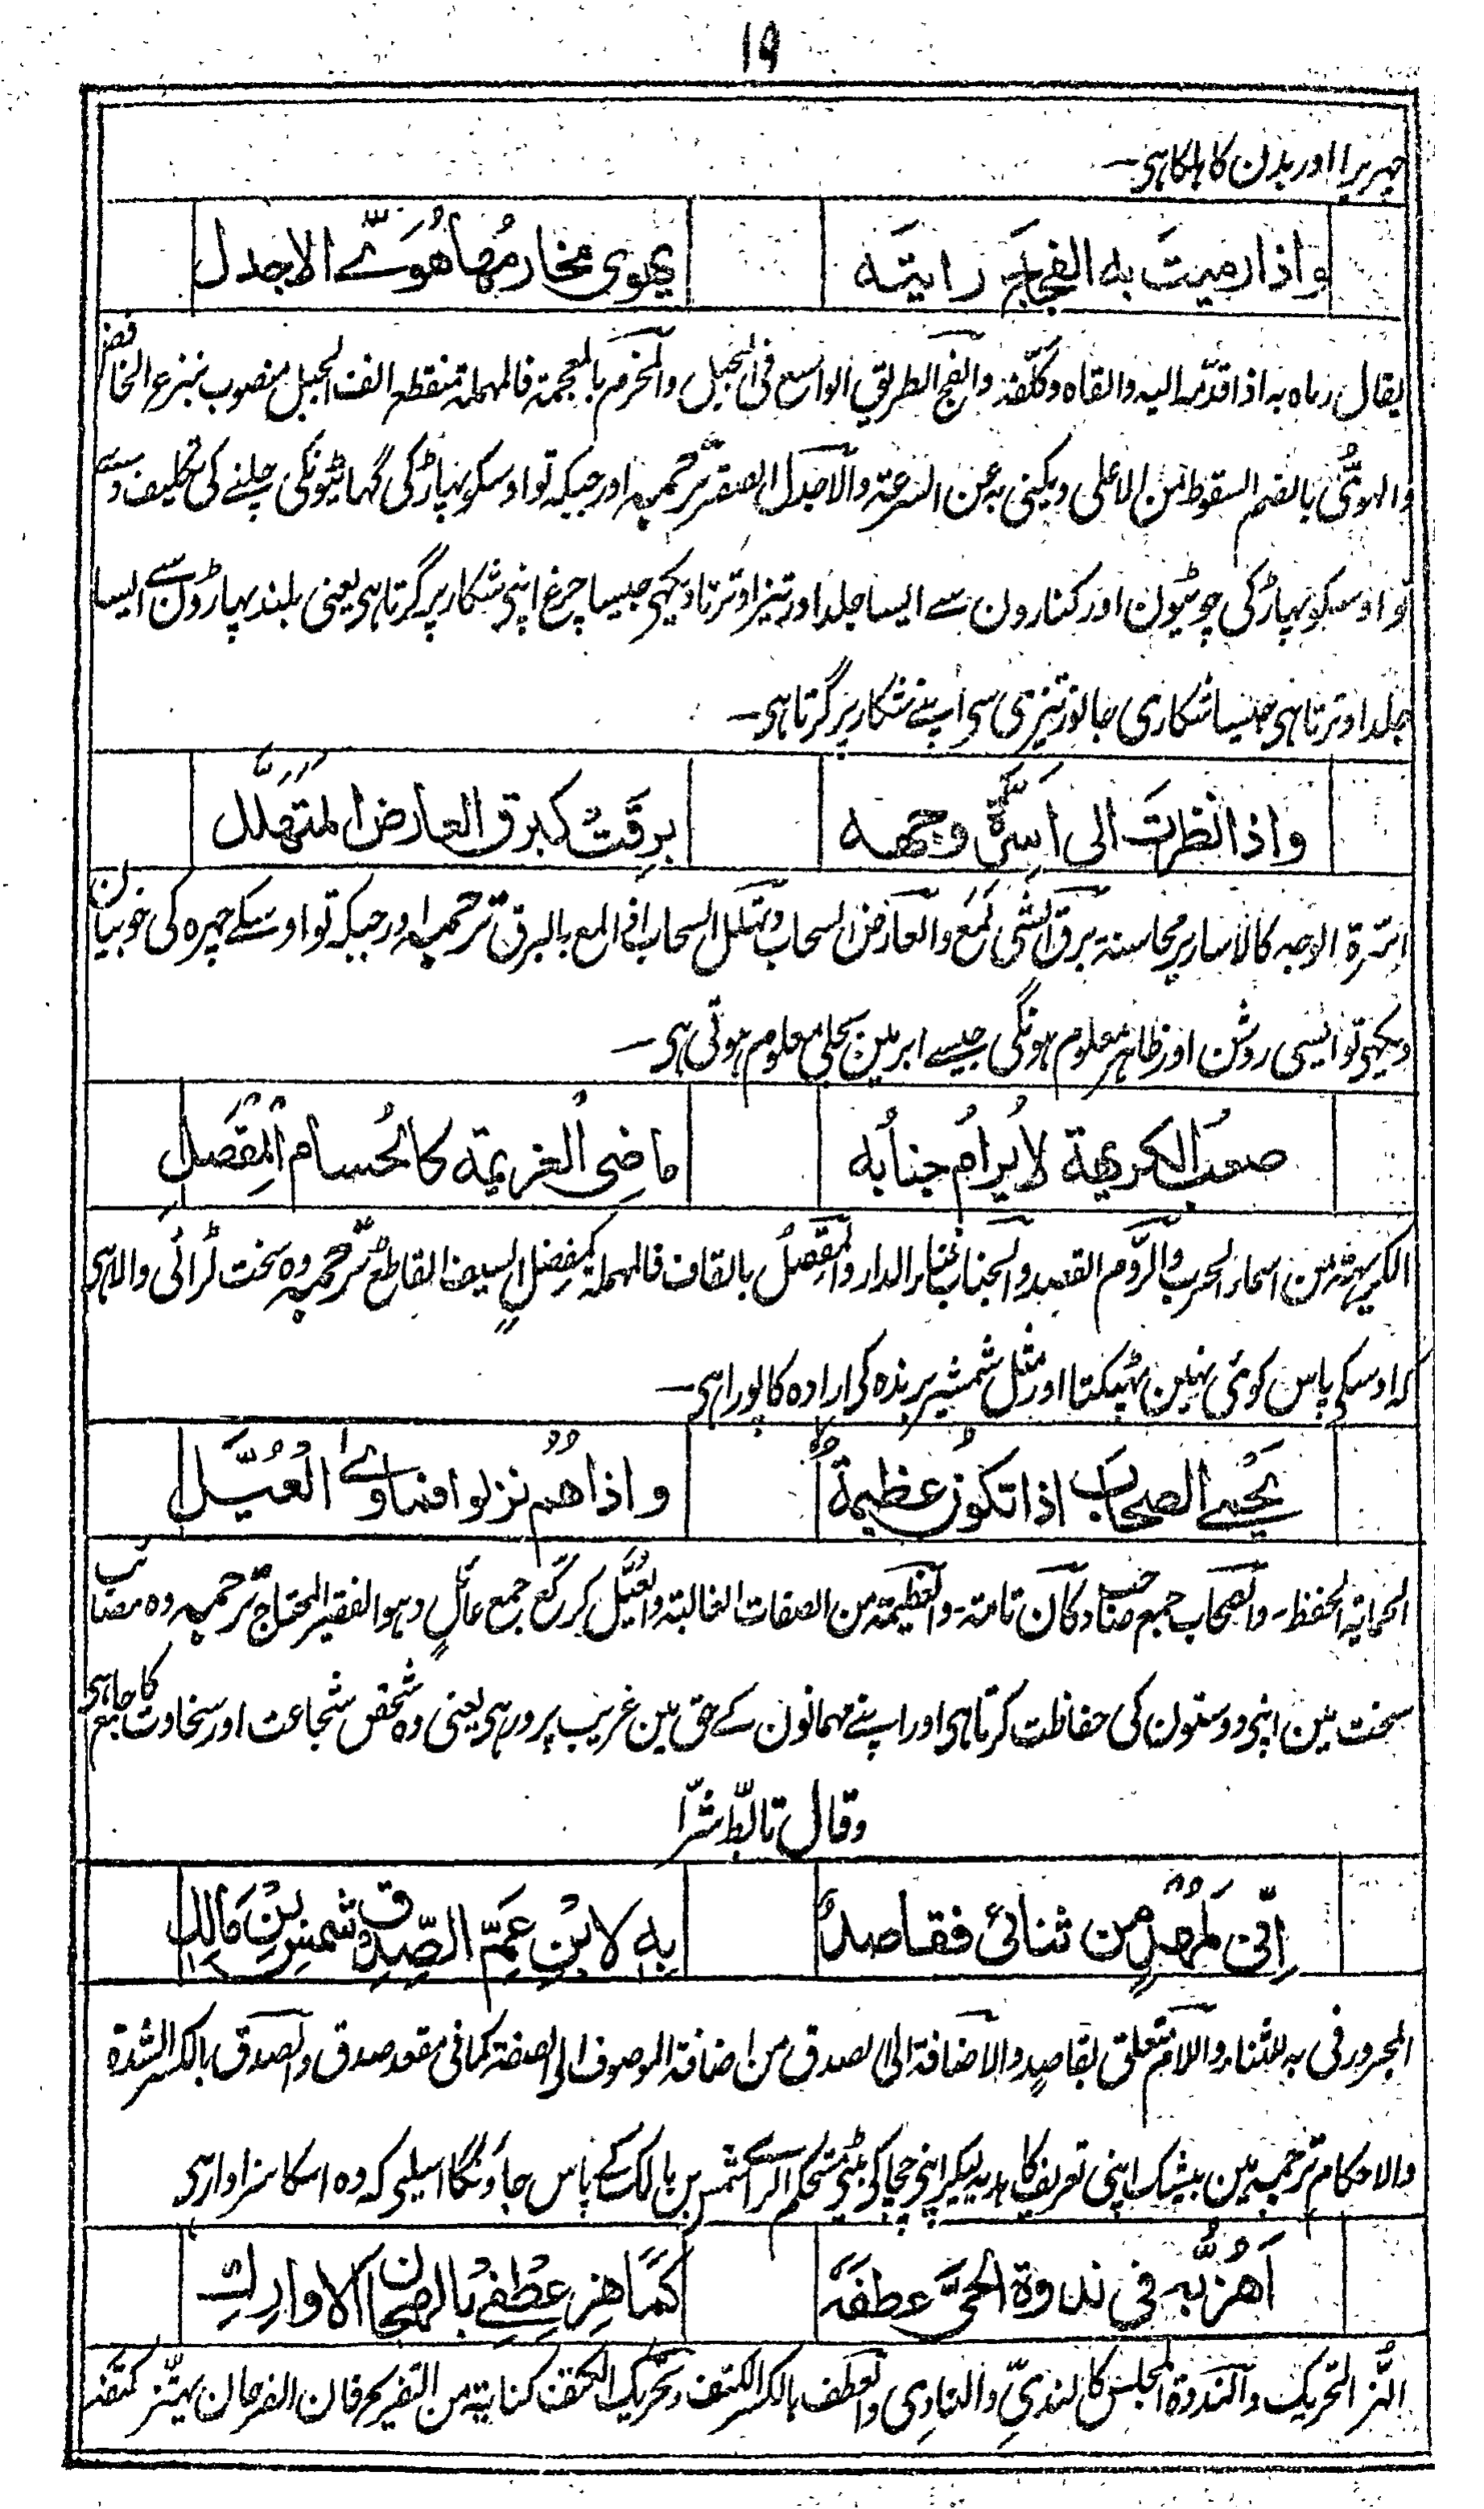 ١٩
چھریرا اور بدن کا ہلکا ہی۔
واذا رمیتَ به الفِجاجَ رایتَه یھوی مخارمُھا ھُوِیَّ الاجدل
یقال رماہ بہ اذا قدّمہ الیہ والقاہ وکلّفہ والفج الطریق الواسع فی الجبل والمخرم بالمعجمۃ فالمہملۃ منقطع الف الجبل منصوب بنزع الخافض
والہُوِیُّ بالضم السقوط من الاعلی ویکنی بہ عن السرعۃ والاجدل الصقر ترجمہ اور جبکہ تو اوسکو پہاڑکی گہاٹیونکی چلنے کی تکلیف دے
تو اوسکو پہاڑکی چوٹیون اور کنارون سے ایسا جلد اور تیز اوترتا دیکہی جیسا چرغ اپنی شکار پر گرتا ہی یعنی بلند پہاڑون سے ایسا
جلد اوترتا ہی جیسا شکاری جانور تیزی سی اپنے شکار پر گرتا ہی۔
واذا نظرتَ الی اَسِرَّۃِ وجھه برِقَتْ کبرق العارض المتھلّل
اسرۃ الوجہ کالاساریر محاسنہ برق الشی لمع والعارض السحاب وتہلل السحاب اذا لمع بالبرق ترجمہ اور جبکہ تو اوسکے چہرہ کی خوبیان
دیکہی تو ایسی روشن اور ظاہر معلوم ہونگی جیسے ابر مین بجلی معلوم ہوتی ہی۔
صعبُ الکریھة لا یُرامُ جنابُه ماضِی العزیمة کالحُسام المِقْصَلِ
الکریہۃ من اسماء الحرب والرّوم القصد والجناب فناء الدار والمِقصلُ بالقاف فالمہملۃ کمِفصَل السیف القاطع ترجمہ وہ سخت لڑائی والا ہی
کہ اوسکی پاس کوئی نہین پہٹکتا اور مثل شمشیر برندہ کی ارادہ کا پورا ہی۔
یَحْمِی الصحابَ اذا تکون عظیمةٌ واذا ھُمُ نزلوا فماوی العُیَّل
الحمایۃ الحفظ۔ والصحاب جمع صاحب وکان تامتہ۔ والعظیمۃ من الصفات الغالبۃ والعُیَّل کرکّع جمع عائلٍ وہو الفقیر المحتاج ترجمہ وہ مصائب
سخت مین اپنی دوستون کی حفاظت کرتا ہی اور اپنے مہمانون کے حق مین غریب پرور ہی یعنی وہ شخص شجاعت اور سخاوت کا جامع ہی
وقال تابّط شرّا
اِنّی لَمُھدٍ من ثنائی فقاصدٌ بِه لابْنِ عَمِّ الصِّدقِ شمسِ بْنِ مَالِكِ
المجرور فی بہ للثناء واللام متعلق بقاصدٍ والاضافۃ الی الصدق من اضافۃ الموصوف الی الصفۃ کما فی مقعد صدق والصدق بالکسر الشدۃ
والاحکام ترجمہ مین بیشک اپنی تعریف کا ہدیہ لیکر اپنی چچا کی بیٹی مستحکم الرائے شمس بن مالک کے پاس جاؤنگا اسلیی کہ وہ اسکا سزاوار ہی
اَھُزُّ به فی ندوة الحیِّ عطفَه کَمَا ھز عِطْفِی بالھجان الاوارِكِ
الہز التحریک والندوۃ المجلس کالندیِّ والنادِی والعطف بالکسر الکتف وتحریک الکتف کنایۃ من التفریح فان الفرحان یہتز کتفہ